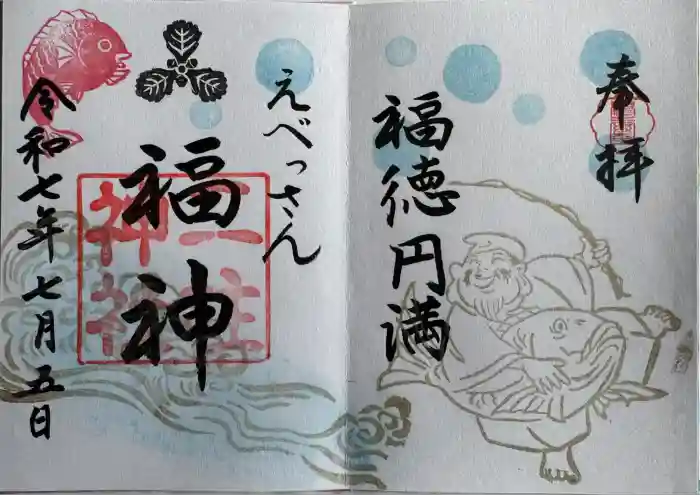 奉拝
福徳円満
えべっさん
福神
三柱
神社
令和七年七月五日